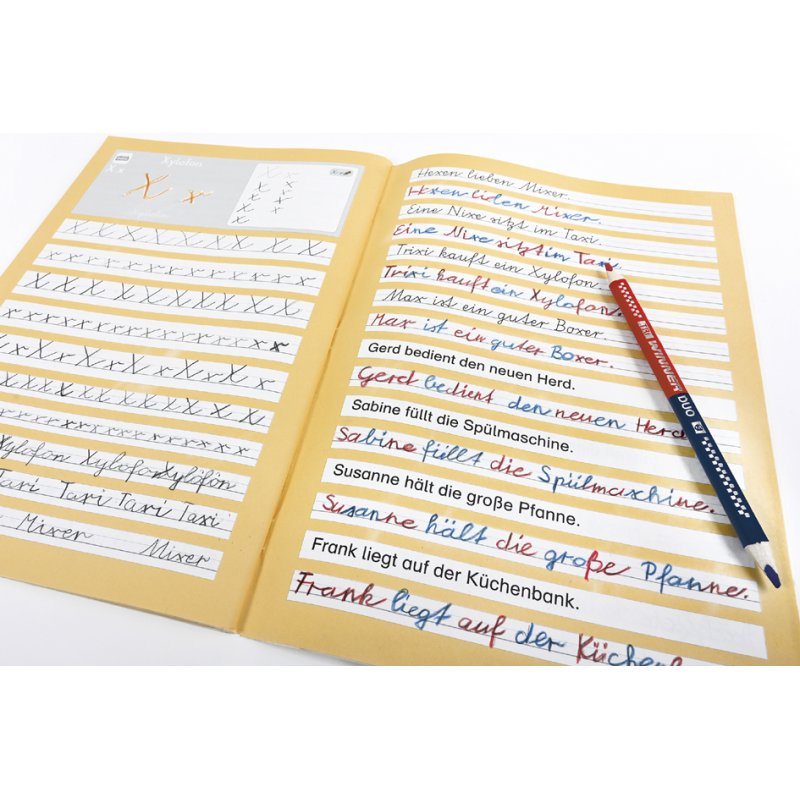 Xylofon
X x
X x
X X X X X X X X X
x x x x x x x x x x x x x
X X X X X X X X X
x x x x x x x x x x x x x x x
x X x X x X x X x
X X X X X X X X X X
x x x x x x x x x x x x x x
Xylofon Xylofon Xylofon
Taxi Taxi Taxi Taxi
Mixer Mixer
Hexen lieben Mixer.
Hexen liden Mixer.
Eine Nixe sitzt im Taxi.
Eine Nixe sitzt im Taxi.
Trixi kauft ein Xylofon.
Trixi kauft ein Xylofon.
Max ist ein guter Boxer.
Max ist ein guter Boxer.
Gerd bedient den neuen Herd.
Gerd bedient den neuen Herd
Sabine füllt die Spülmaschine.
Sabine füllt die Spülmaschine.
Susanne hält die große Pfanne.
Susanne hält die große Pfanne.
Frank liegt auf der Küchenbank.
Frank liegt auf der Küchen
WINNER DUO